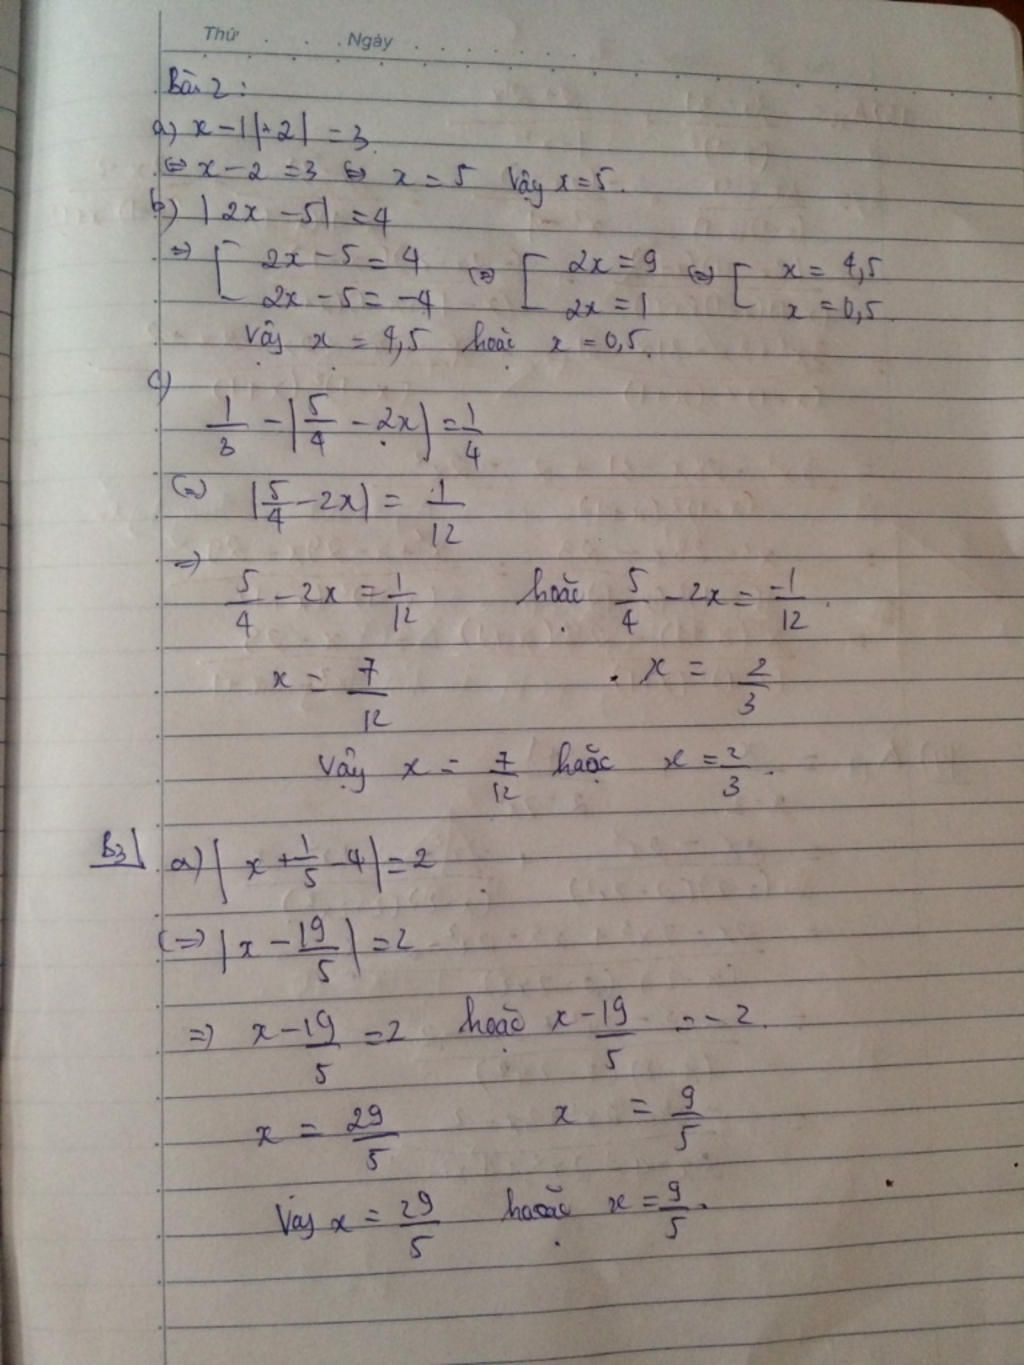 Thứ . . . . Ngày . . . . . . . .
Bài 2:
a) x - 1|+2| = 3.
⇔ x - 2 = 3 ⇔ x = 5 Vậy x = 5.
b) |2x - 5| = 4
⇒ [ 2x - 5 = 4 ⇔ [ 2x = 9 ⇔ [ x = 4,5
2x - 5 = -4 2x = 1 x = 0,5.
Vậy x = 4,5 hoặc x = 0,5.
c)
1/3 - |5/4 - 2x| = 1/4
⇔ |5/4 - 2x| = 1/12
⇒
5/4 - 2x = 1/12 hoặc 5/4 - 2x = -1/12.
x = 7/12 x = 2/3
Vậy x = 7/12 hoặc x = 2/3.
B3| a) |x + 1/5 - 4| = 2
⇔ |x - 19/5| = 2
⇒ x - 19/5 = 2 hoặc x - 19/5 = -2.
x = 29/5 x = 9/5
Vậy x = 29/5 hoặc x = 9/5.